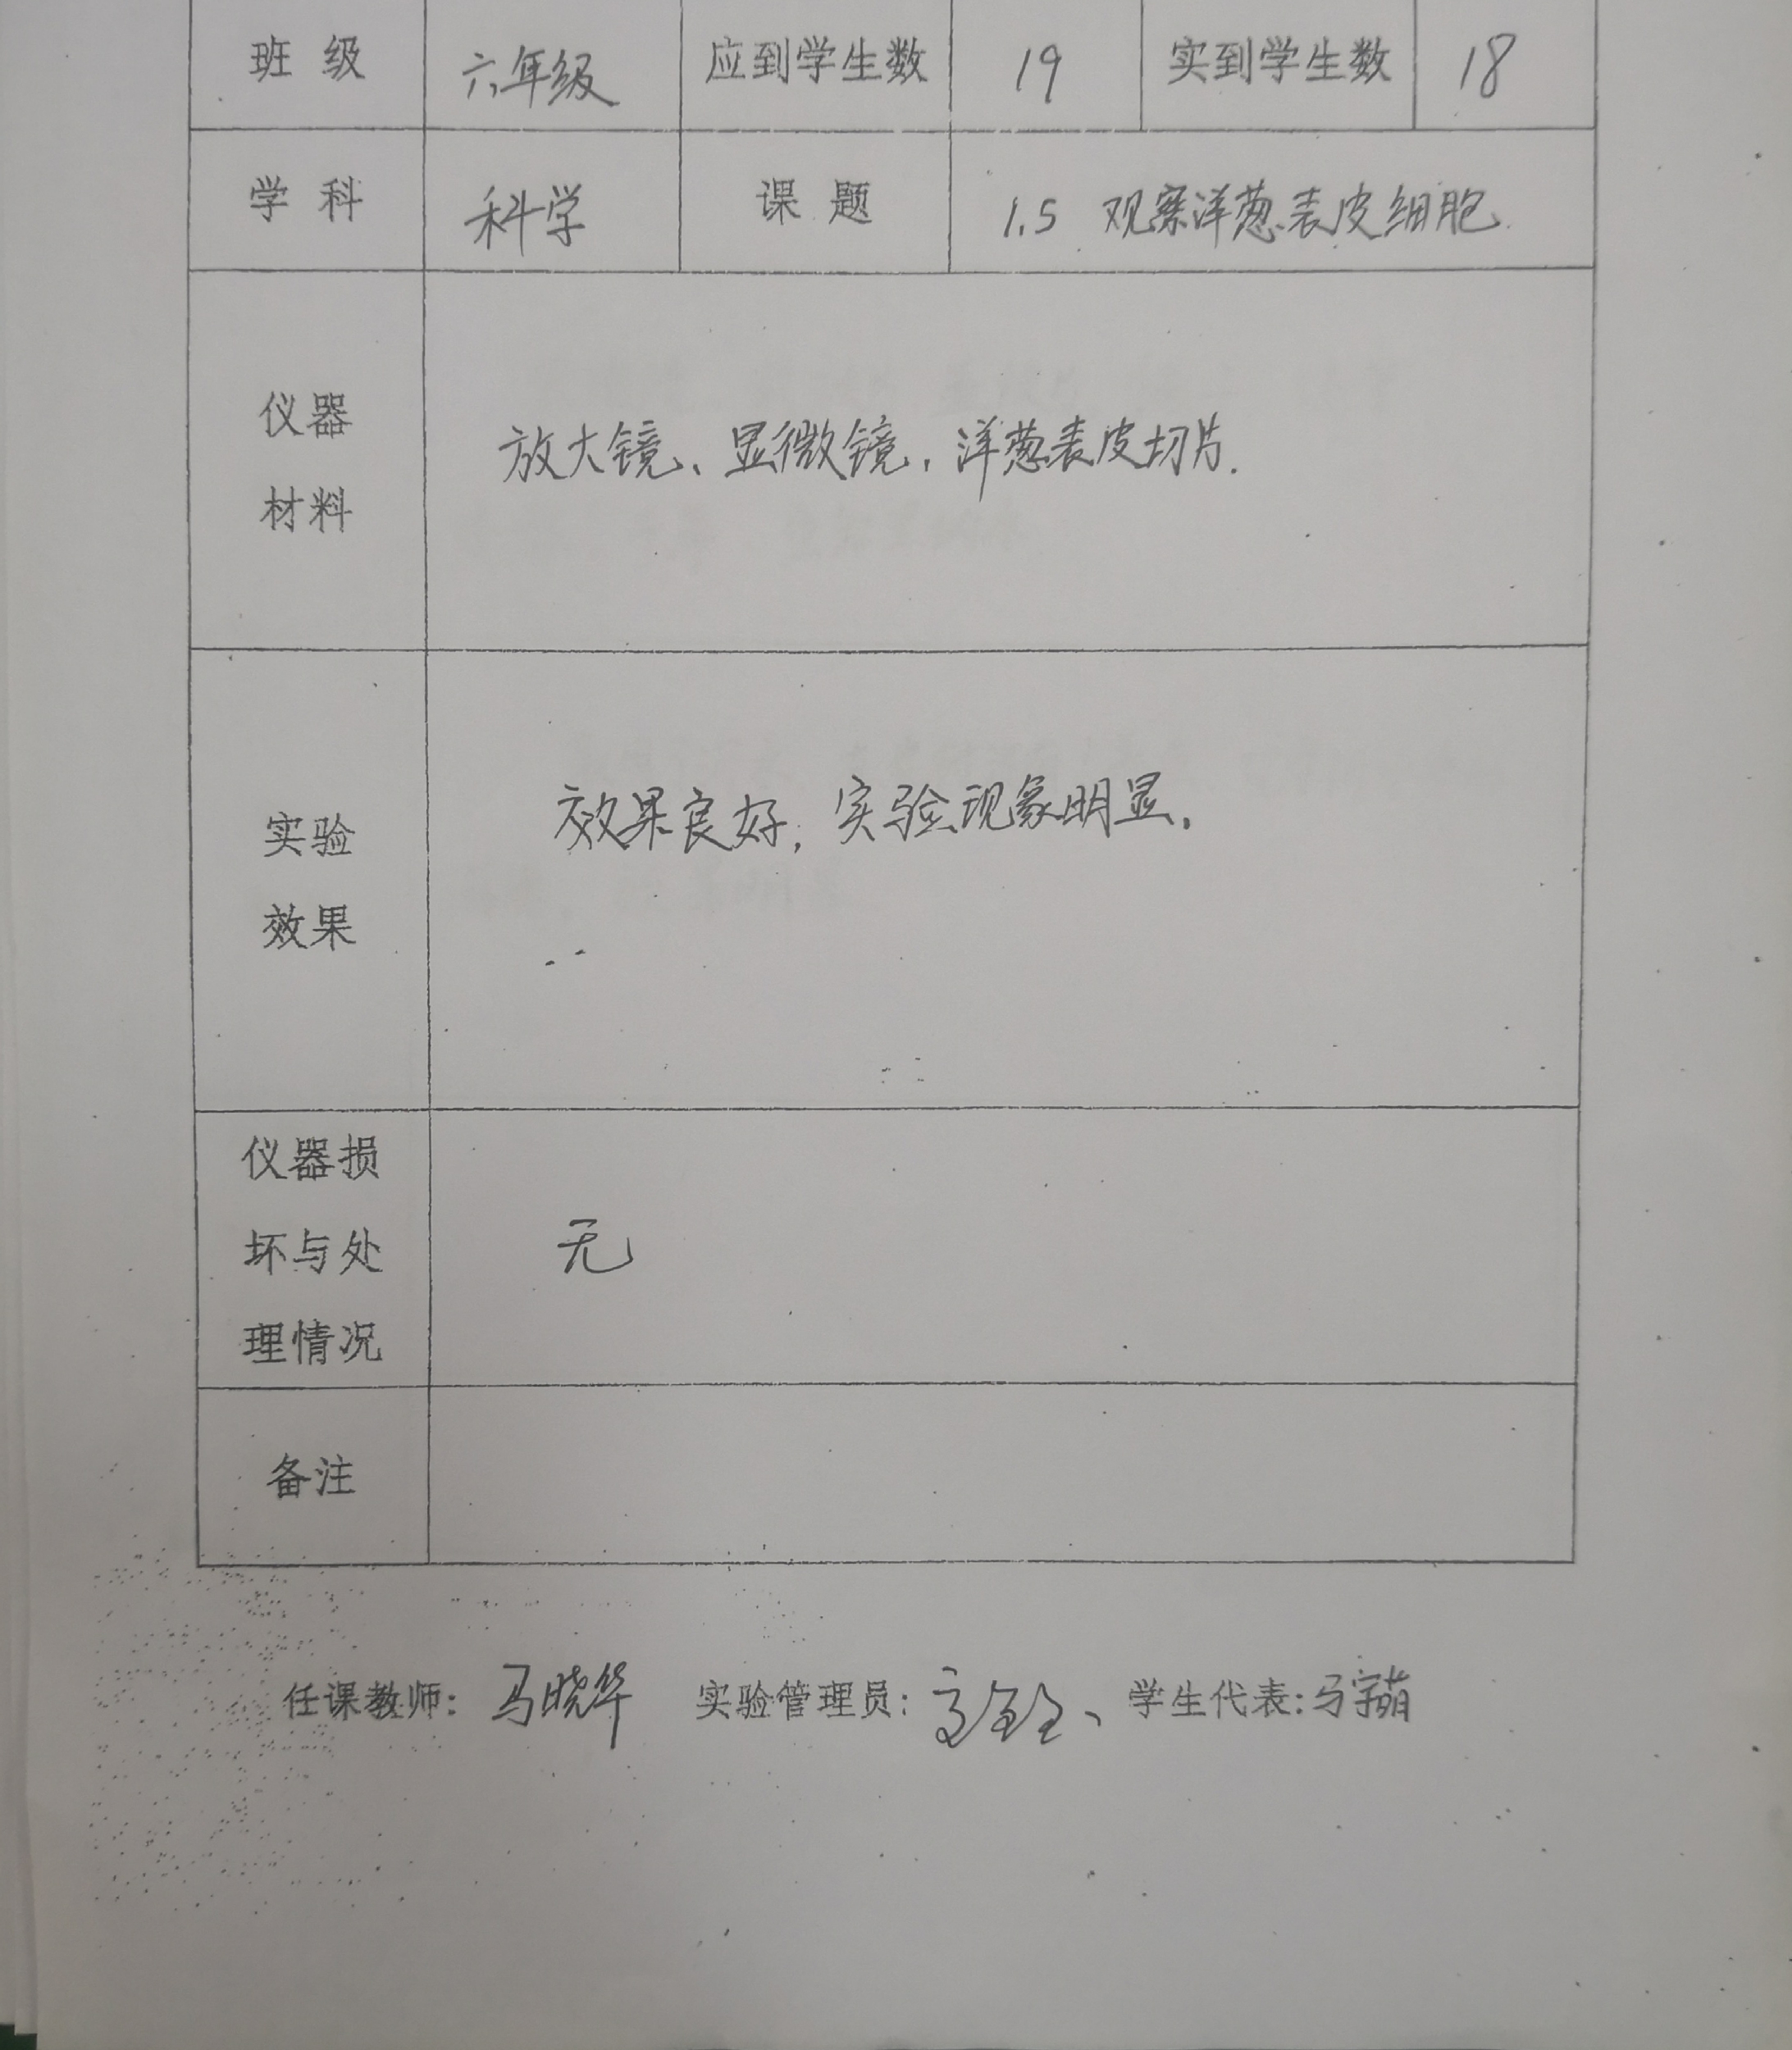 班 级 六年级 应到学生数 19 实到学生数 18
学 科 科学 课 题 1.5 观察洋葱表皮细胞
仪器
材料
放大镜、显微镜,洋葱表皮切片.
实验
效果
效果良好,实验现象明显.
仪器损
坏与处
理情况
无
备注
任课教师: 马晓华 实验管理员: 学生代表: 马宇萌